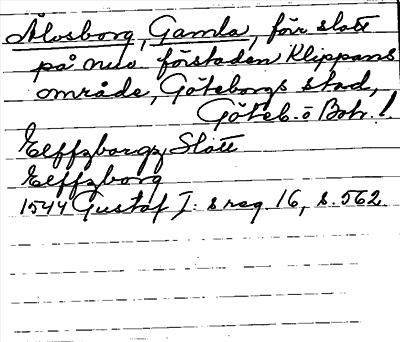 Älvsborg, Gamla, förr slott
på nuv. förstaden Klippans
område, Göteborgs stad,
Göteb. o Boh. l.
Elffzborgz Slott
Elffzborg
1544 Gustaf I:s reg. 16, s. 562.